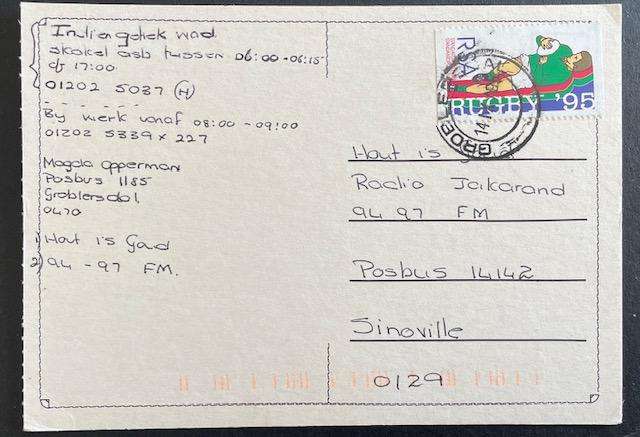 Indien getrek word
skakel asb tussen 06:00-06:15
of 17:00
01202 5037 (H)
By werk vanaf 08:00-09:00
01202 5339 x 227
Magda Opperman
Posbus 1185
Groblersdal
0470
1) Hout is Goud
2) 94-97 FM.
RSA
RUGBY '95
Hout is
Radio Jakarand
94 97 FM
Posbus 14142
Sinoville
0129